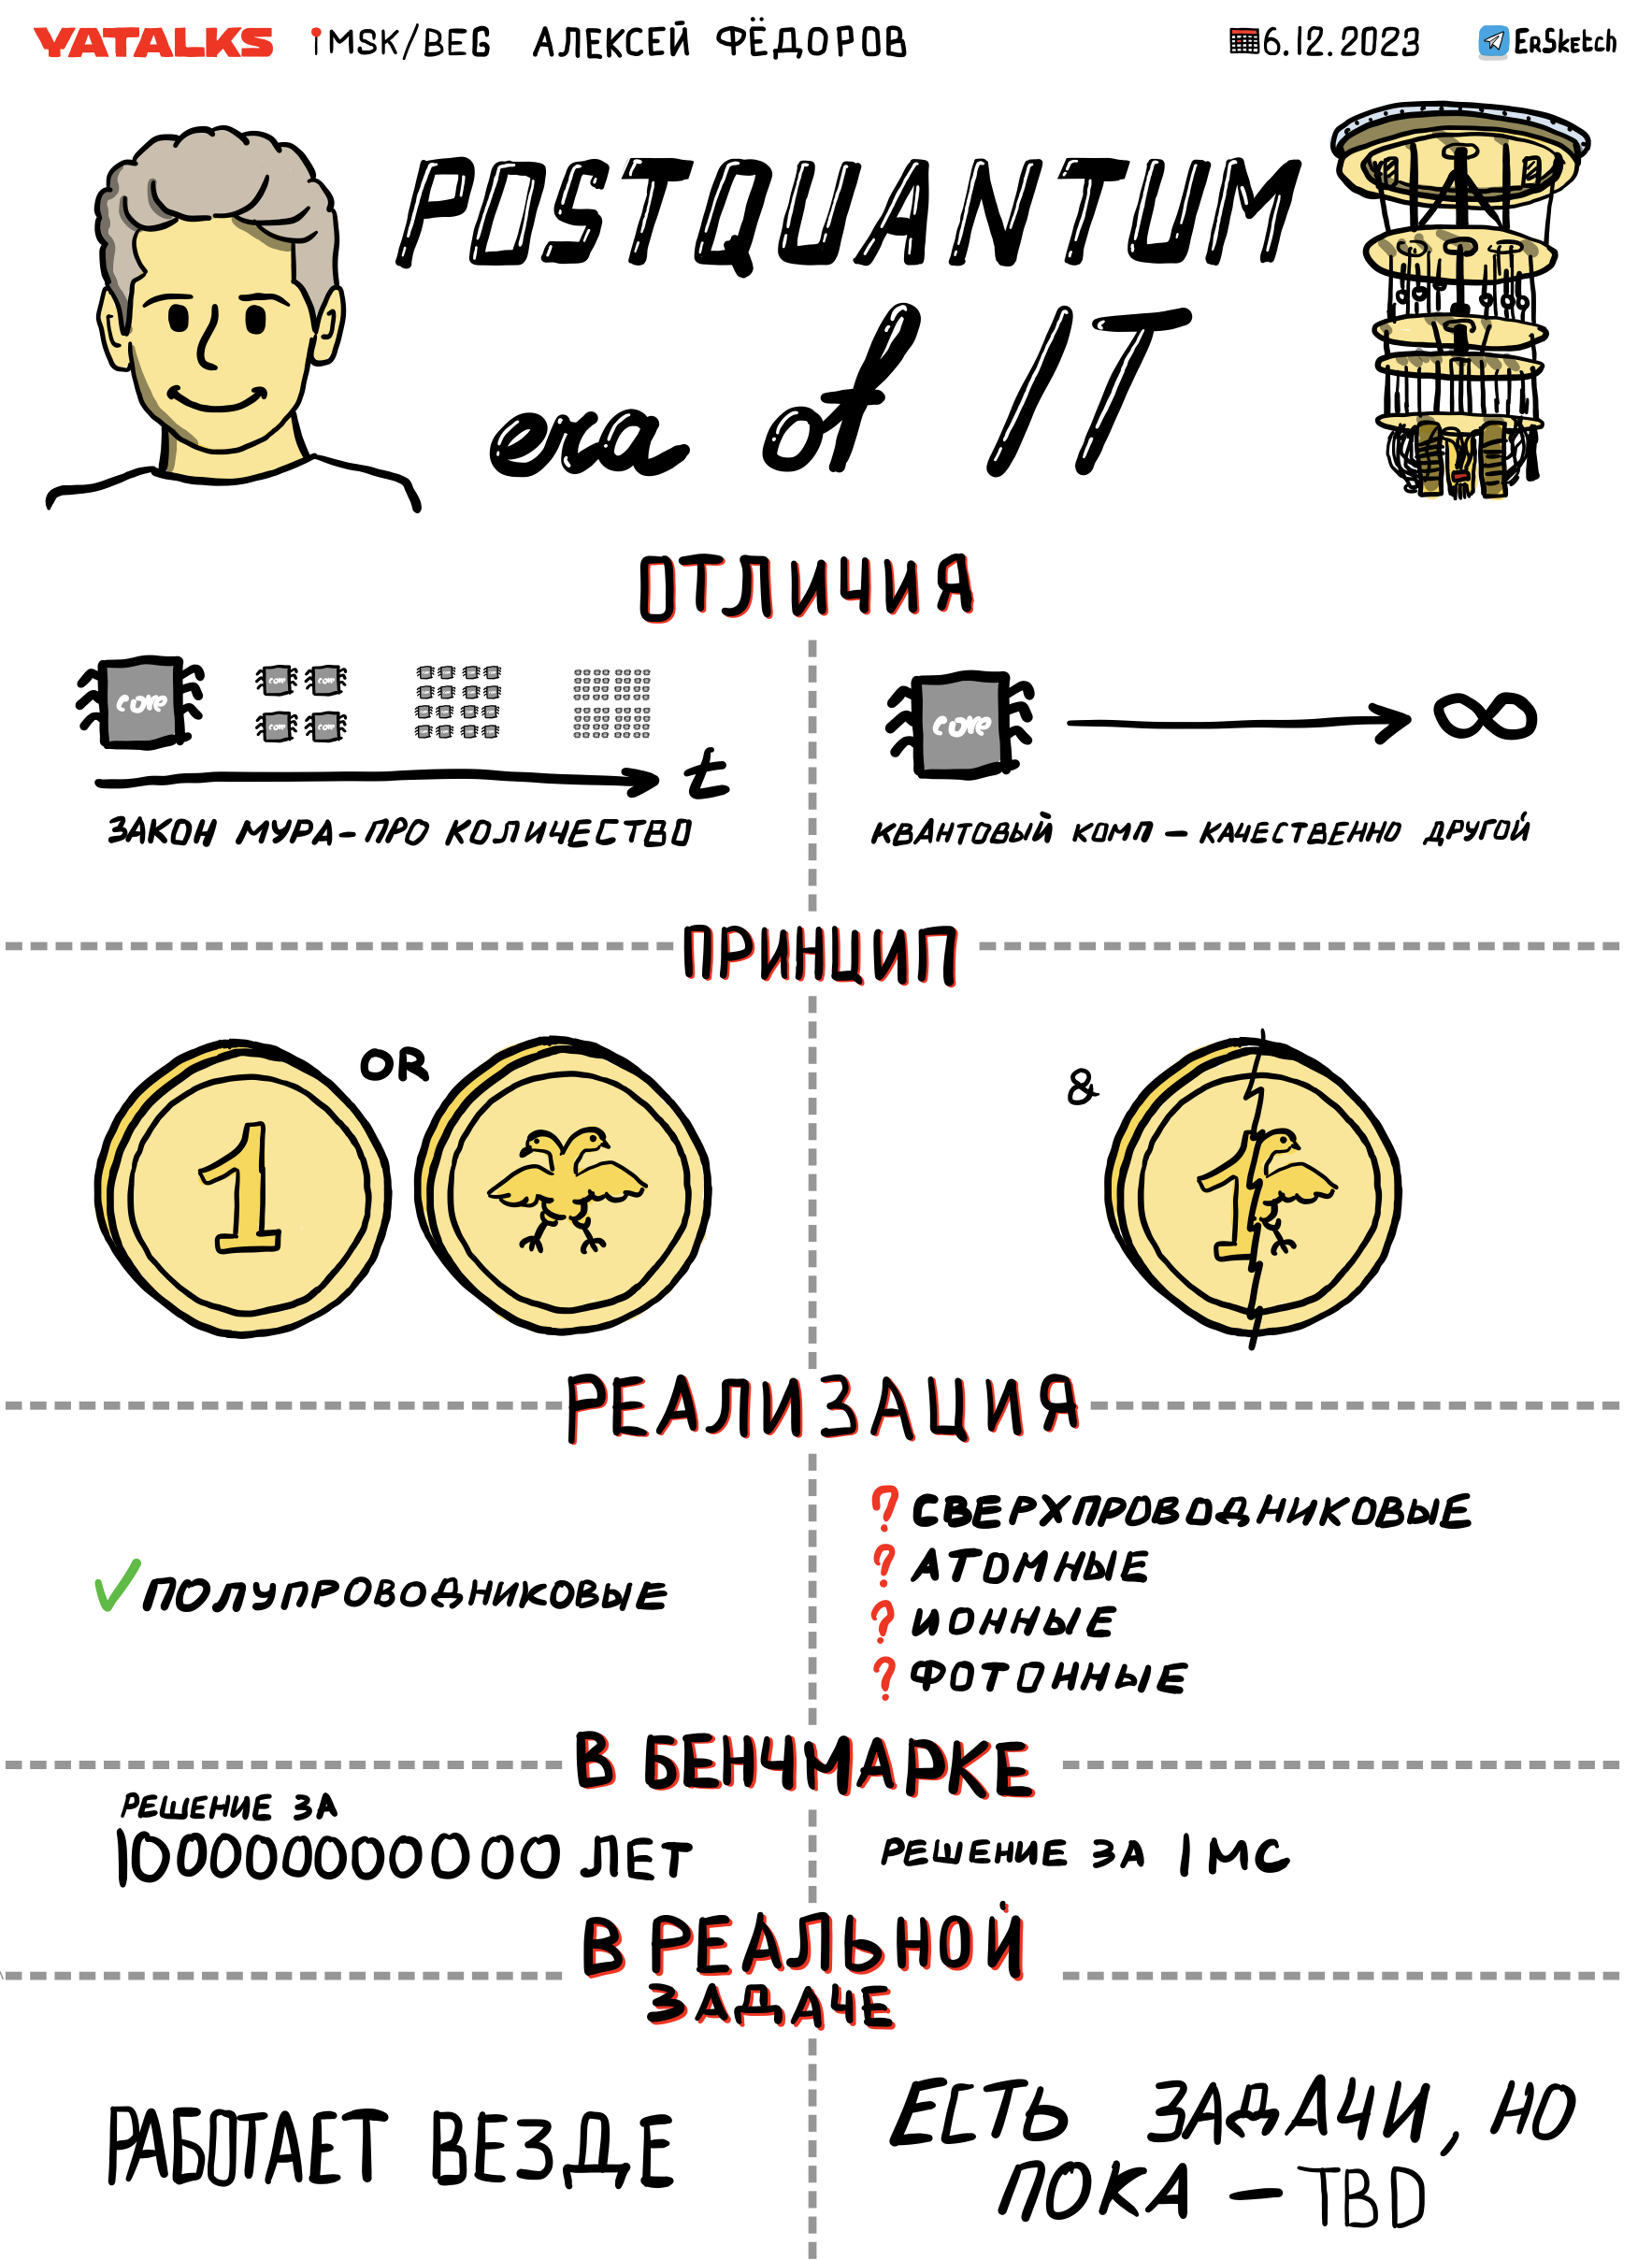 YATALKS MSK/BEG АЛЕКСЕЙ ФЁДОРОВ 6.12.2023 ErSketch
POSTQUANTUM
era of IT
ОТЛИЧИЯ
core
core core
core core
t
ЗАКОН МУРА - ПРО КОЛИЧЕСТВО
core ∞
КВАНТОВЫЙ КОМП - КАЧЕСТВЕННО ДРУГОЙ
ПРИНЦИП
1 OR
& 1
РЕАЛИЗАЦИЯ
ПОЛУПРОВОДНИКОВЫЕ
? СВЕРХПРОВОДНИКОВЫЕ
? АТОМНЫЕ
? ИОННЫЕ
? ФОТОННЫЕ
В БЕНЧМАРКЕ
РЕШЕНИЕ ЗА
100000000000 ЛЕТ
РЕШЕНИЕ ЗА 1 МС
В РЕАЛЬНОЙ
ЗАДАЧЕ
РАБОТАЕТ ВЕЗДЕ
ЕСТЬ ЗАДАЧИ, НО
ПОКА - TBD